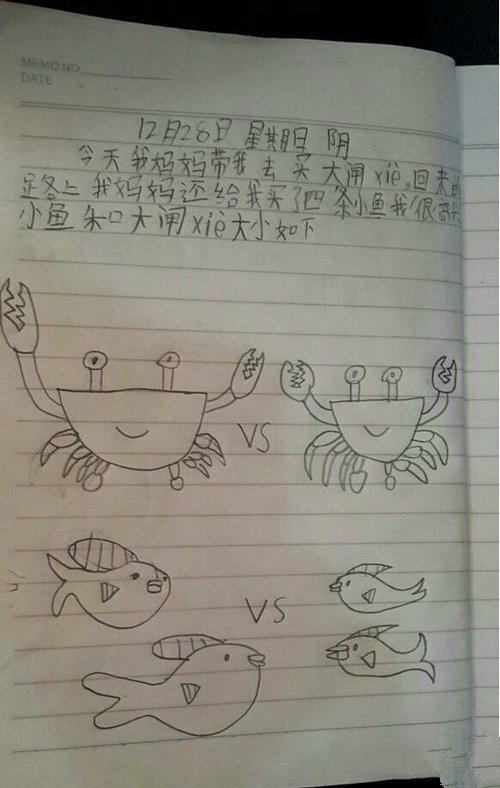 MEMO NO.
DATE
12月28日 星期日 阴
今天我妈妈带我去买大闸xiè,回来的
路上我妈妈还给我买了四条小鱼我很高兴
小鱼和大闸xiè大小如下
VS
VS